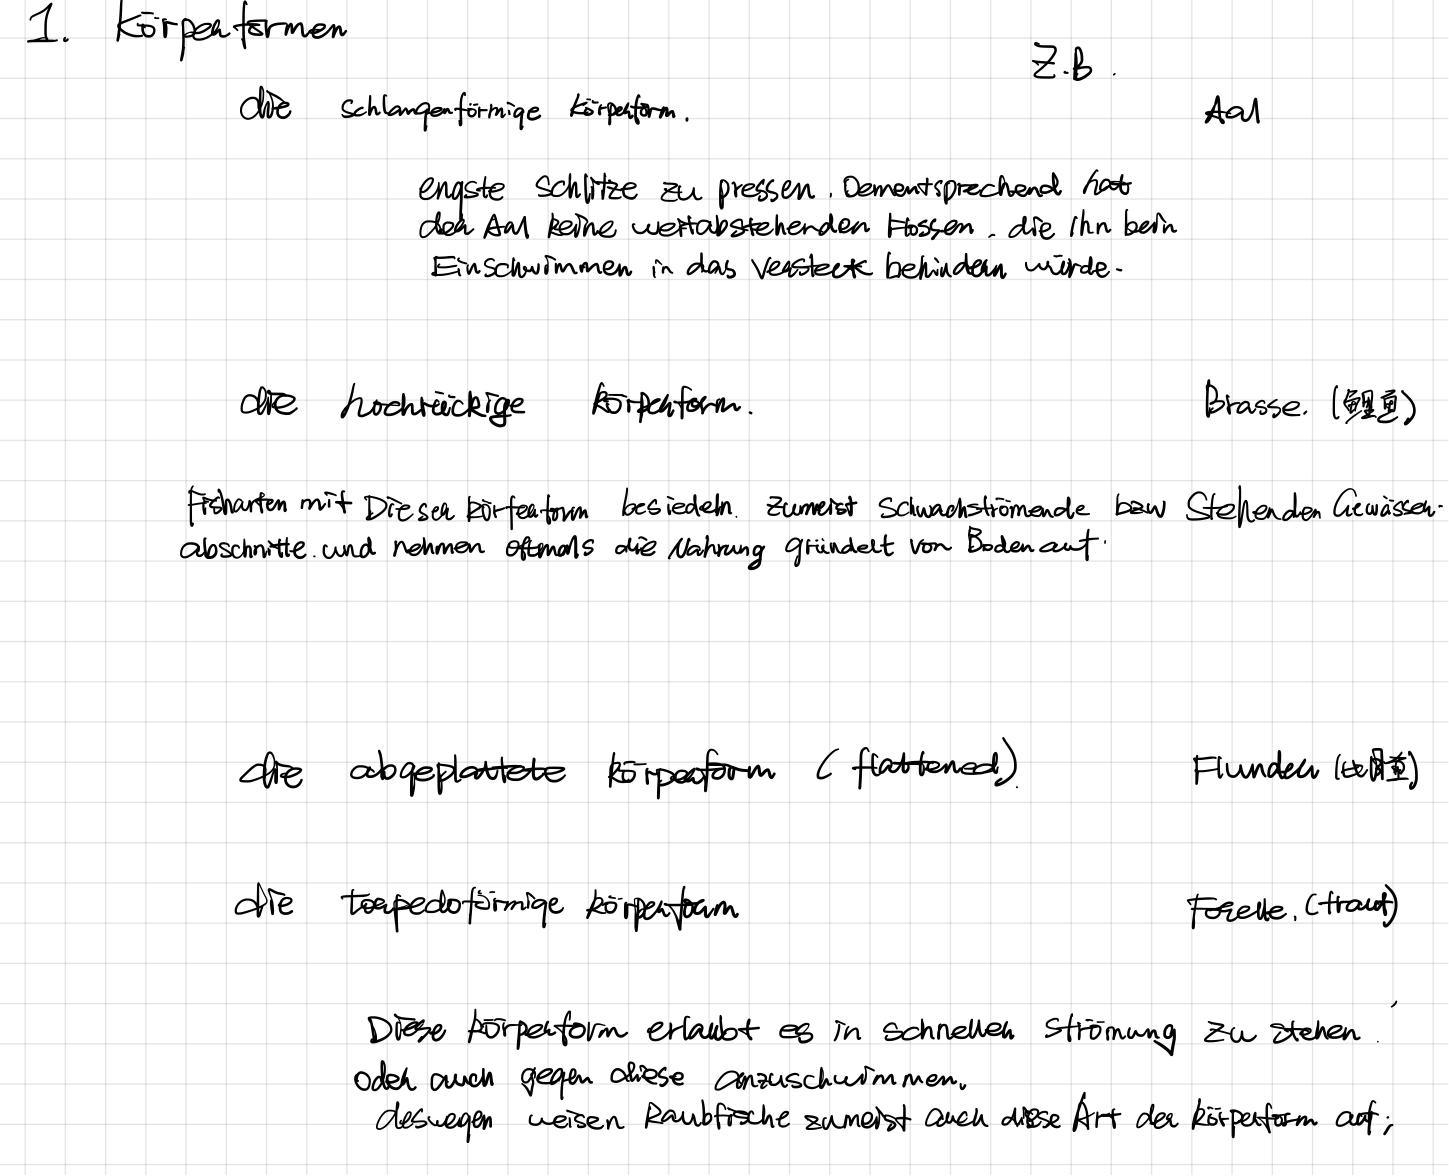 1. Körperformen
Z.B.
die schlangenförmige Körperform. Aal
engste Schlitze zu pressen. Dementsprechend hat
der Aal keine weitabstehenden Flossen. die ihn beim
Einschwimmen in das Versteck behindern würde.
die hochrückige Körperform. Brasse. (鲤鱼)
Fisharten mit Dieser Körperform besiedeln. zumeist schwachströmende bzw Stehenden Gewässer-
abschnitte. und nehmen oftmals die Nahrung gründelt von Boden auf.
die abgeplattete Körperform (flattened). Flunder (比目鱼)
die torpedoförmige Körperform Forelle. (traut)
Diese Körperform erlaubt es in schneller Strömung zu stehen.
oder auch gegen diese anzuschwimmen.
deswegen weisen Raubfische zumeist auch diese Art der Körperform auf;